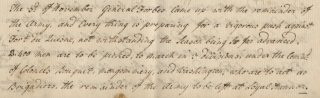 The 2d of November General Forbes came up with the remainder of
the Army, and every thing is preparing for a vigorous push against
Fort du Quesne, notwithstanding the Season being so far advanced.
2500 men are to be picked to march in 3 divisions under the Comd.
of Colonels Bouquet, Montgomery, and Washington, who are to act as
Brigadiers, the remainder of the Army to be left at Loyal Hanon